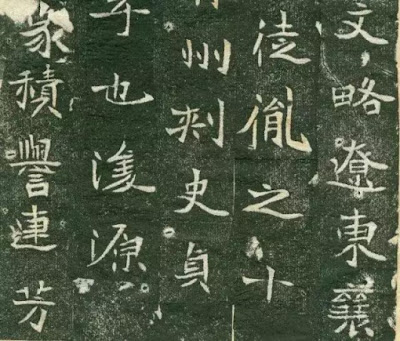 文略遼東襄
徒胤之十
州刺史貞
子也浚源
家積譽連芳